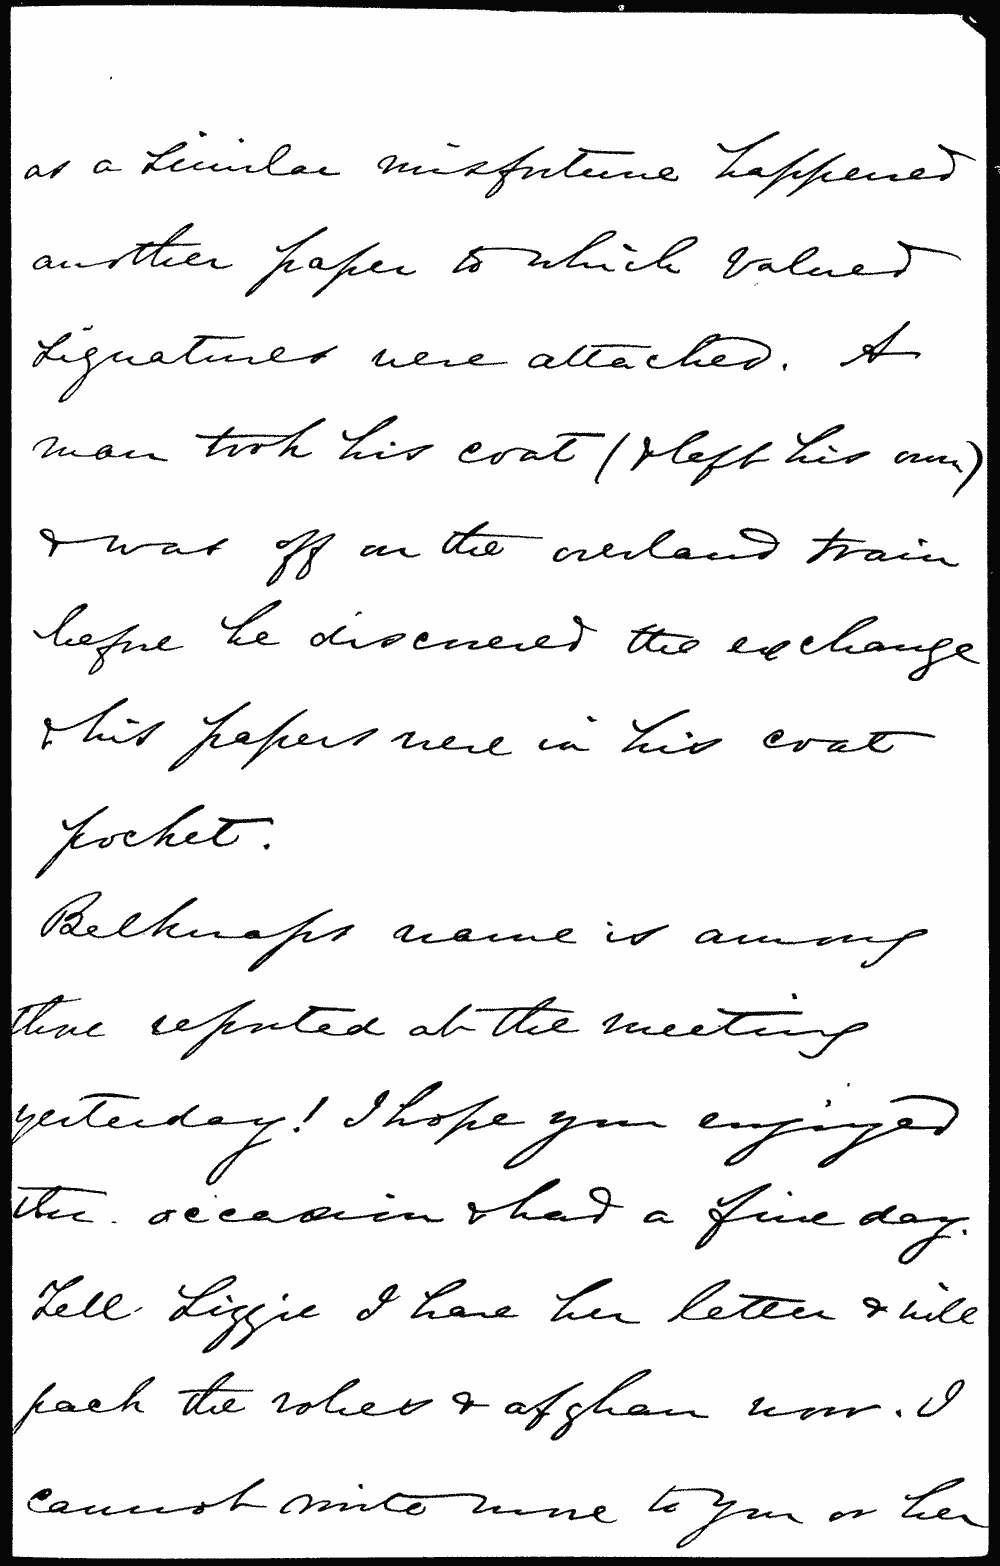 as a similar misfortune happened
another paper to which valued
signatures were attached. A
man took his coat (& left his own)
& was off on the overland train
before he discovered the exchange
& his papers were in his coat
pocket.
Belknaps name is among
those reported at the meeting
yesterday! I hope you enjoyed
the occasion & had a fine day.
Tell Lizzie I have her letter & will
pack the robes & afghan now. I
cannot write more to you or her